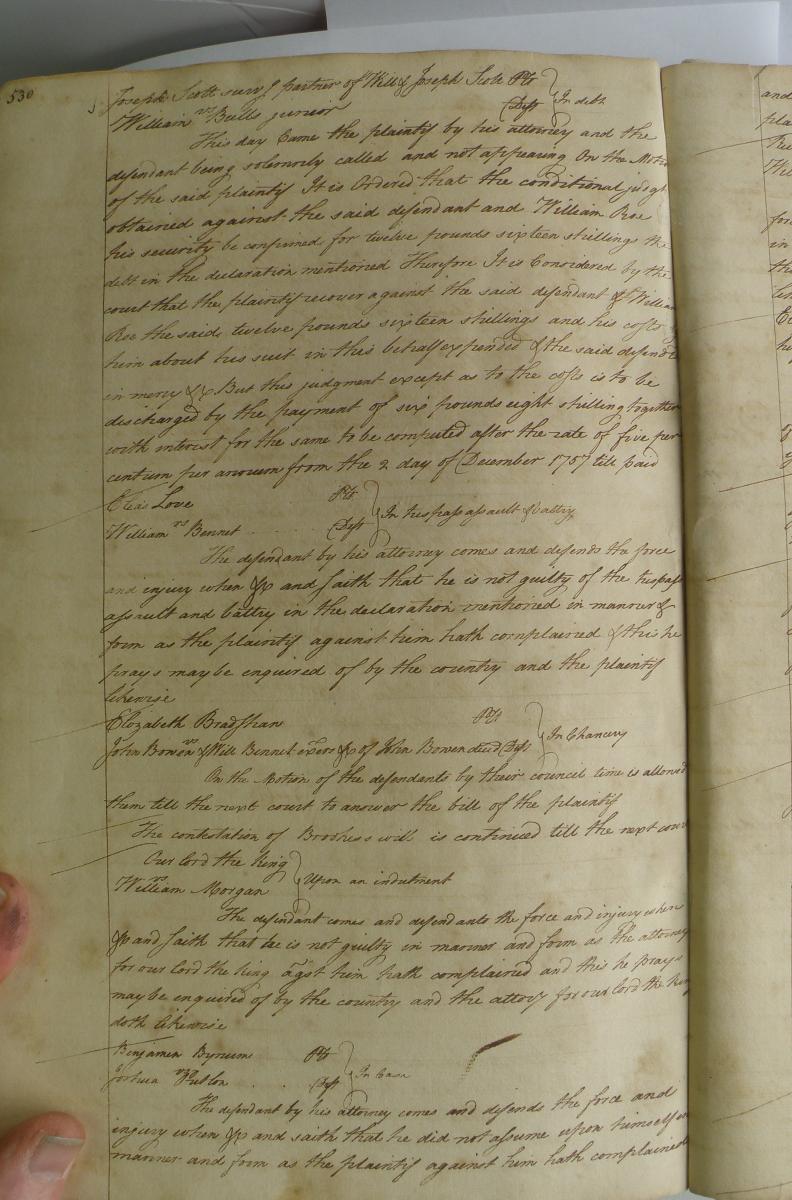 530
Joseph Scott surv.g partner of Will & Joseph Scott Plt
vs } In debt
William Bulls junior Deft
This day Came the plaintif by his attorney and the
defendant being solemnly called and not appearing On the Motion
of the said plaintif It is Ordered that the conditional judgt
obtained against the said defendant and William Roe
his security be confirmed for twelve pounds sixteen shillings the
debt in the declaration mentioned Therefore It is Considered by the
court that the plaintif recover against the said defendant & William
Roe the said twelve pounds sixteen shillings and his costs by
him about his suit in this behalf expended & the said defendt
in mercy &c But this judgment except as to the costs is to be
discharged by the payment of six pounds eight shilling together
with interest for the same to be computed after the rate of five per
centum per annum from the 2 day of December 1757 till paid
Elias Love Plt
vs } In trespass assault & battry
William Bennet . . . Deft
The defendant by his attorney comes and defends the force
and injury when &c and saith that he is not guilty of the trespass
assault and battry in the declaration mentioned in manner &
form as the plaintif against him hath complained & this he
prays may be enquired of by the country and the plaintif
likewise
Elizabeth Bradshaw Plt
vs } In Chancery
John Bowen & Will Bennet exors &c of John Bowen decd Defts
On the Motion of the defendents by their council time is allowed
them till the next court to answer the bill of the plaintif
The contestation of will is continued till the next court
Our lord the King
vs } Upon an inditment
William Morgan
The defendant comes and defendants the force and injury when
&c and saith that he is not guilty in manner and form as the attorney
for our Lord the King agst him hath complained and this he prays
may be enquired of by the country and the attory for our Lord the King
doth likewise
Benjamin Bynum Plt
vs } In Case
Joshua . . Deft
The defendant by his attorney comes and defends the force and
injury when &c and saith that he did not assume upon himself in
manner and form as the plaintif against him hath complained